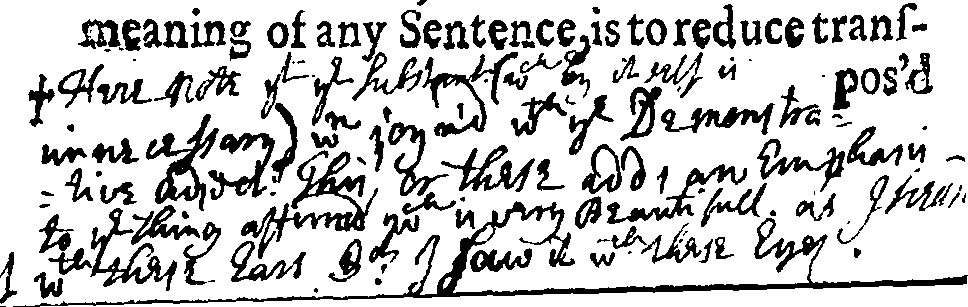 meaning of any Sentence, is to reduce trans-
pos'd
+ Here note yt ye substant: (wch by it self is
unnecessary) wn joyn'd wth ye Demonstra=
=tive adject: This, or these adds an Emphasis
to ye thing affirmd, wch is very Beautifull. as I heard
it wth these Ears I saw it wth these Eyes.